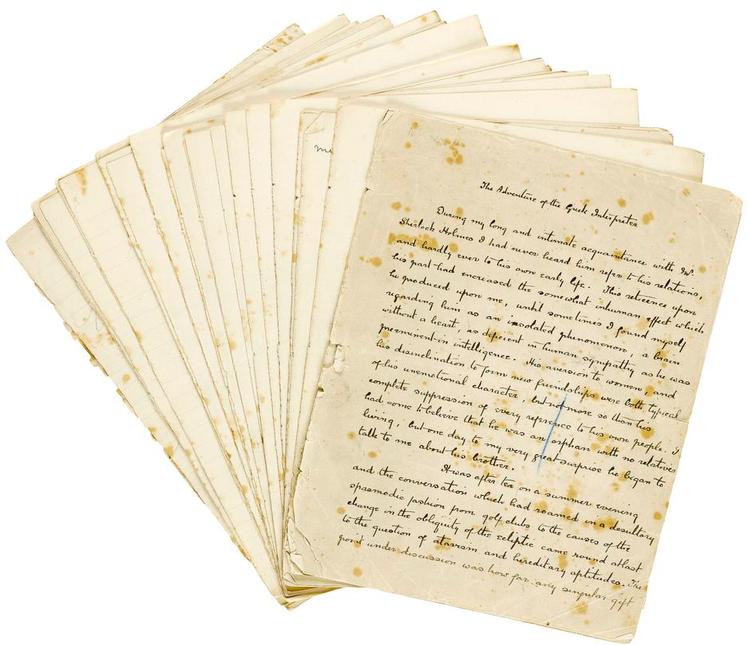 The Adventure of the Greek Interpreter
During my long and intimate acquaintance with Mr.
Sherlock Holmes I had never heard him refer to his relations,
and hardly ever to his own early life. This reticence upon
his part had encreased the somewhat inhuman effect which
he produced upon me, until sometimes I found myself
regarding him as an insolated phenomenon, a brain
without a heart, as deficient in human sympathy as he was
preeminent in intelligence. His aversion to women, and
his disinclination to form new friendships were both typical
of his unemotional character, but not more so than his
complete suppression of every reference to his own people. I
had come to believe that he was an orphan with no relatives
living, but one day to my very great surprise he began to
talk to me about his brother.
It was after tea on a summer evening
and the conversation which had roamed in a desultory
spasmodic fashion from golf clubs to the causes of the
change in the obliquity of the ecliptic came round at last
to the question of atavism and hereditary aptitudes. The
point under discussion was how far any singular gift